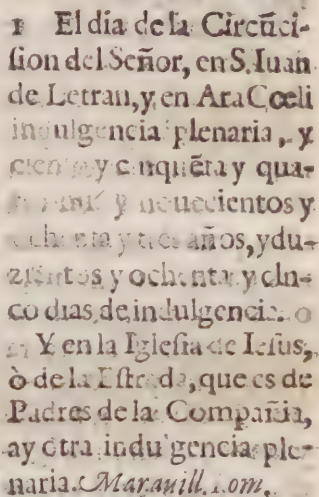 1 El dia de la Circũci-
sion del Señor, en S. Iuan
de Letran, y en Ara Cœli
indulgencia plenaria, y
cien y cinquẽta y qua-
y nouecientos y
ochenta y tres años, y du-
zientos y ochenta y cin-
co dias de indulgencia.
Y en la Iglesia de Iesus,
ò de la Estrada, que es de
Padres de la Compañia,
ay otra indulgencia ple-
naria. Marauill. Rom.